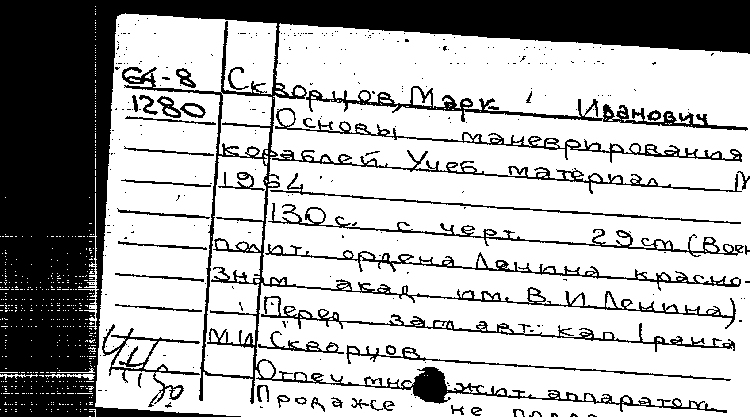 64-8 Скворцов, Марк Иванович
1280 Основы маневрирования
кораблей. Учеб. материал. М
1964
130 с. с черт. 29 см (Воен
полит. ордена Ленина красно-
знам. акад. им. В. И Ленина).
Перед загл. авт: кап. I ранга
М.И. Скворцов.
Отпеч. множит. аппаратом.
Продаже не